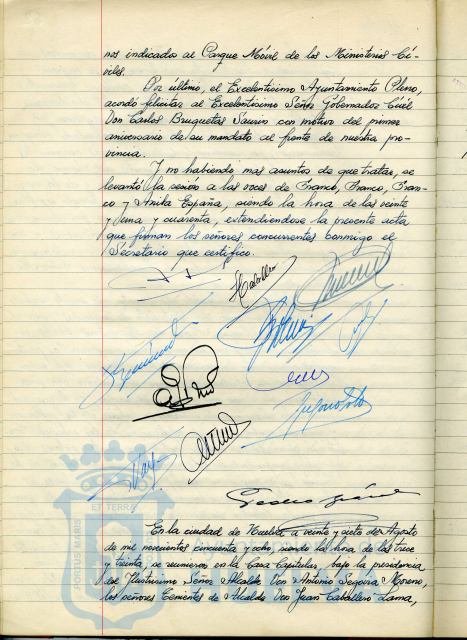 nos indicados al Parque Móvil de los Ministerios Ci-
viles.
Por último, el Excelentísimo Ayuntamiento Pleno,
acordó felicitar al Excelentísimo Señor Gobernador Civil
Don Carlos Bruguetas Saurin con motivo del primer
aniversario de su mandato al frente de nuestra pro-
vincia.
Y no habiendo mas asuntos de que tratar, se
levantó la sesión a las voces de Franco, Franco, Fran-
co y Arriba España, siendo la hora de las veinte
y una y cuarenta, extendiendose la presente acta
que firman los señores concurrentes conmigo el
Secretario que certifico.
PORTUS MARIS
ET TERRÆ
En la ciudad de Huelva a veinte y siete de Agosto
de mil novecientos cincuenta y ocho, siendo la hora de las trece
y treinta, se reunieron en la Casa Capitular, bajo la presidencia
del Ilustrísimo Señor Alcalde Don Antonio Segovia Moreno,
los señores Tenientes de Alcalde Don Juan Caballero Lama,